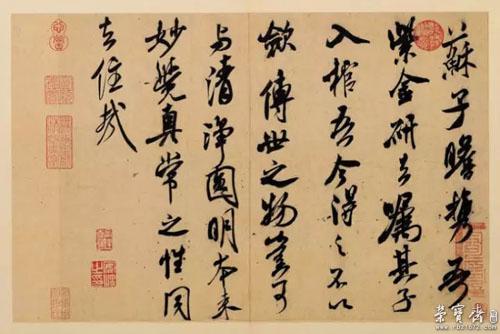 蘇子瞻攜吾
紫金研去囑其子
入棺吾今得之不以
斂傳世之物豈可
與清淨圓明本來
妙覺真常之性同
去住哉
榮寶齋